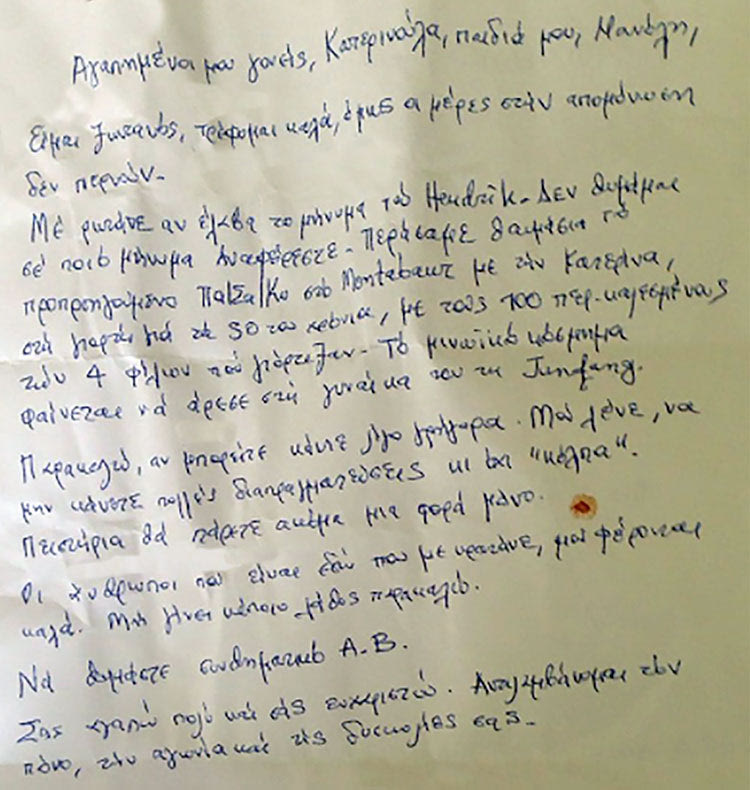 Αγαπημένοι μου γονείς, Κατερινούλα, παιδιά μου, Μανόλη,
Είμαι ζωτανός, τρέφομαι καλά, όμως οι μέρες στην απομόνωση
δεν περνούν-
Μέ ρωτάνε αν έλαβα το μήνυμα τού Hendrik- Δεν θυμάμαι
σέ ποιό μήνυμα Αναφέρεστε- Περάσαμε θαυμάσια τό
προπροηγούμενο ΠΑΣΑ/ΚΟ στό Montabaur με τήν Κατερίνα,
στη γιορτή γιά τα 50 του χρόνια, με τους 100 περ. καλεσμένους
τών 4 φίλων πού γιόρταζαν- Τό μινωϊκό κόσμημα
φαίνεται νά άρεσε στη γυναίκα του τη Junfang.
Παρακαλώ, αν μπορείτε κάντε λίγο γρήγορα. Μού λένε, να
μην κάνετε πολλές διαπραγματεύσεις κι όχι "κόλπα".
Πειστήρια θά πάρετε ακόμα μια φορά μόνο.
Οι άνθρωποι πού είναι εδώ που με κρατάνε, μού φέρονται
καλά. Μην γίνει κάποιο λάθος παρακαλώ.
Νά θυμάστε συνθηματικό Α-Β.
Σας αγαπώ πολύ καί σάς ευχαριστώ. Αντιλαμβάνομαι τόν
πόνο, τήν αγωνία καί τίς δυσκολίες σας-